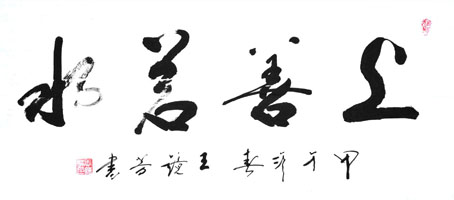 上善若水
甲午年春王芳書